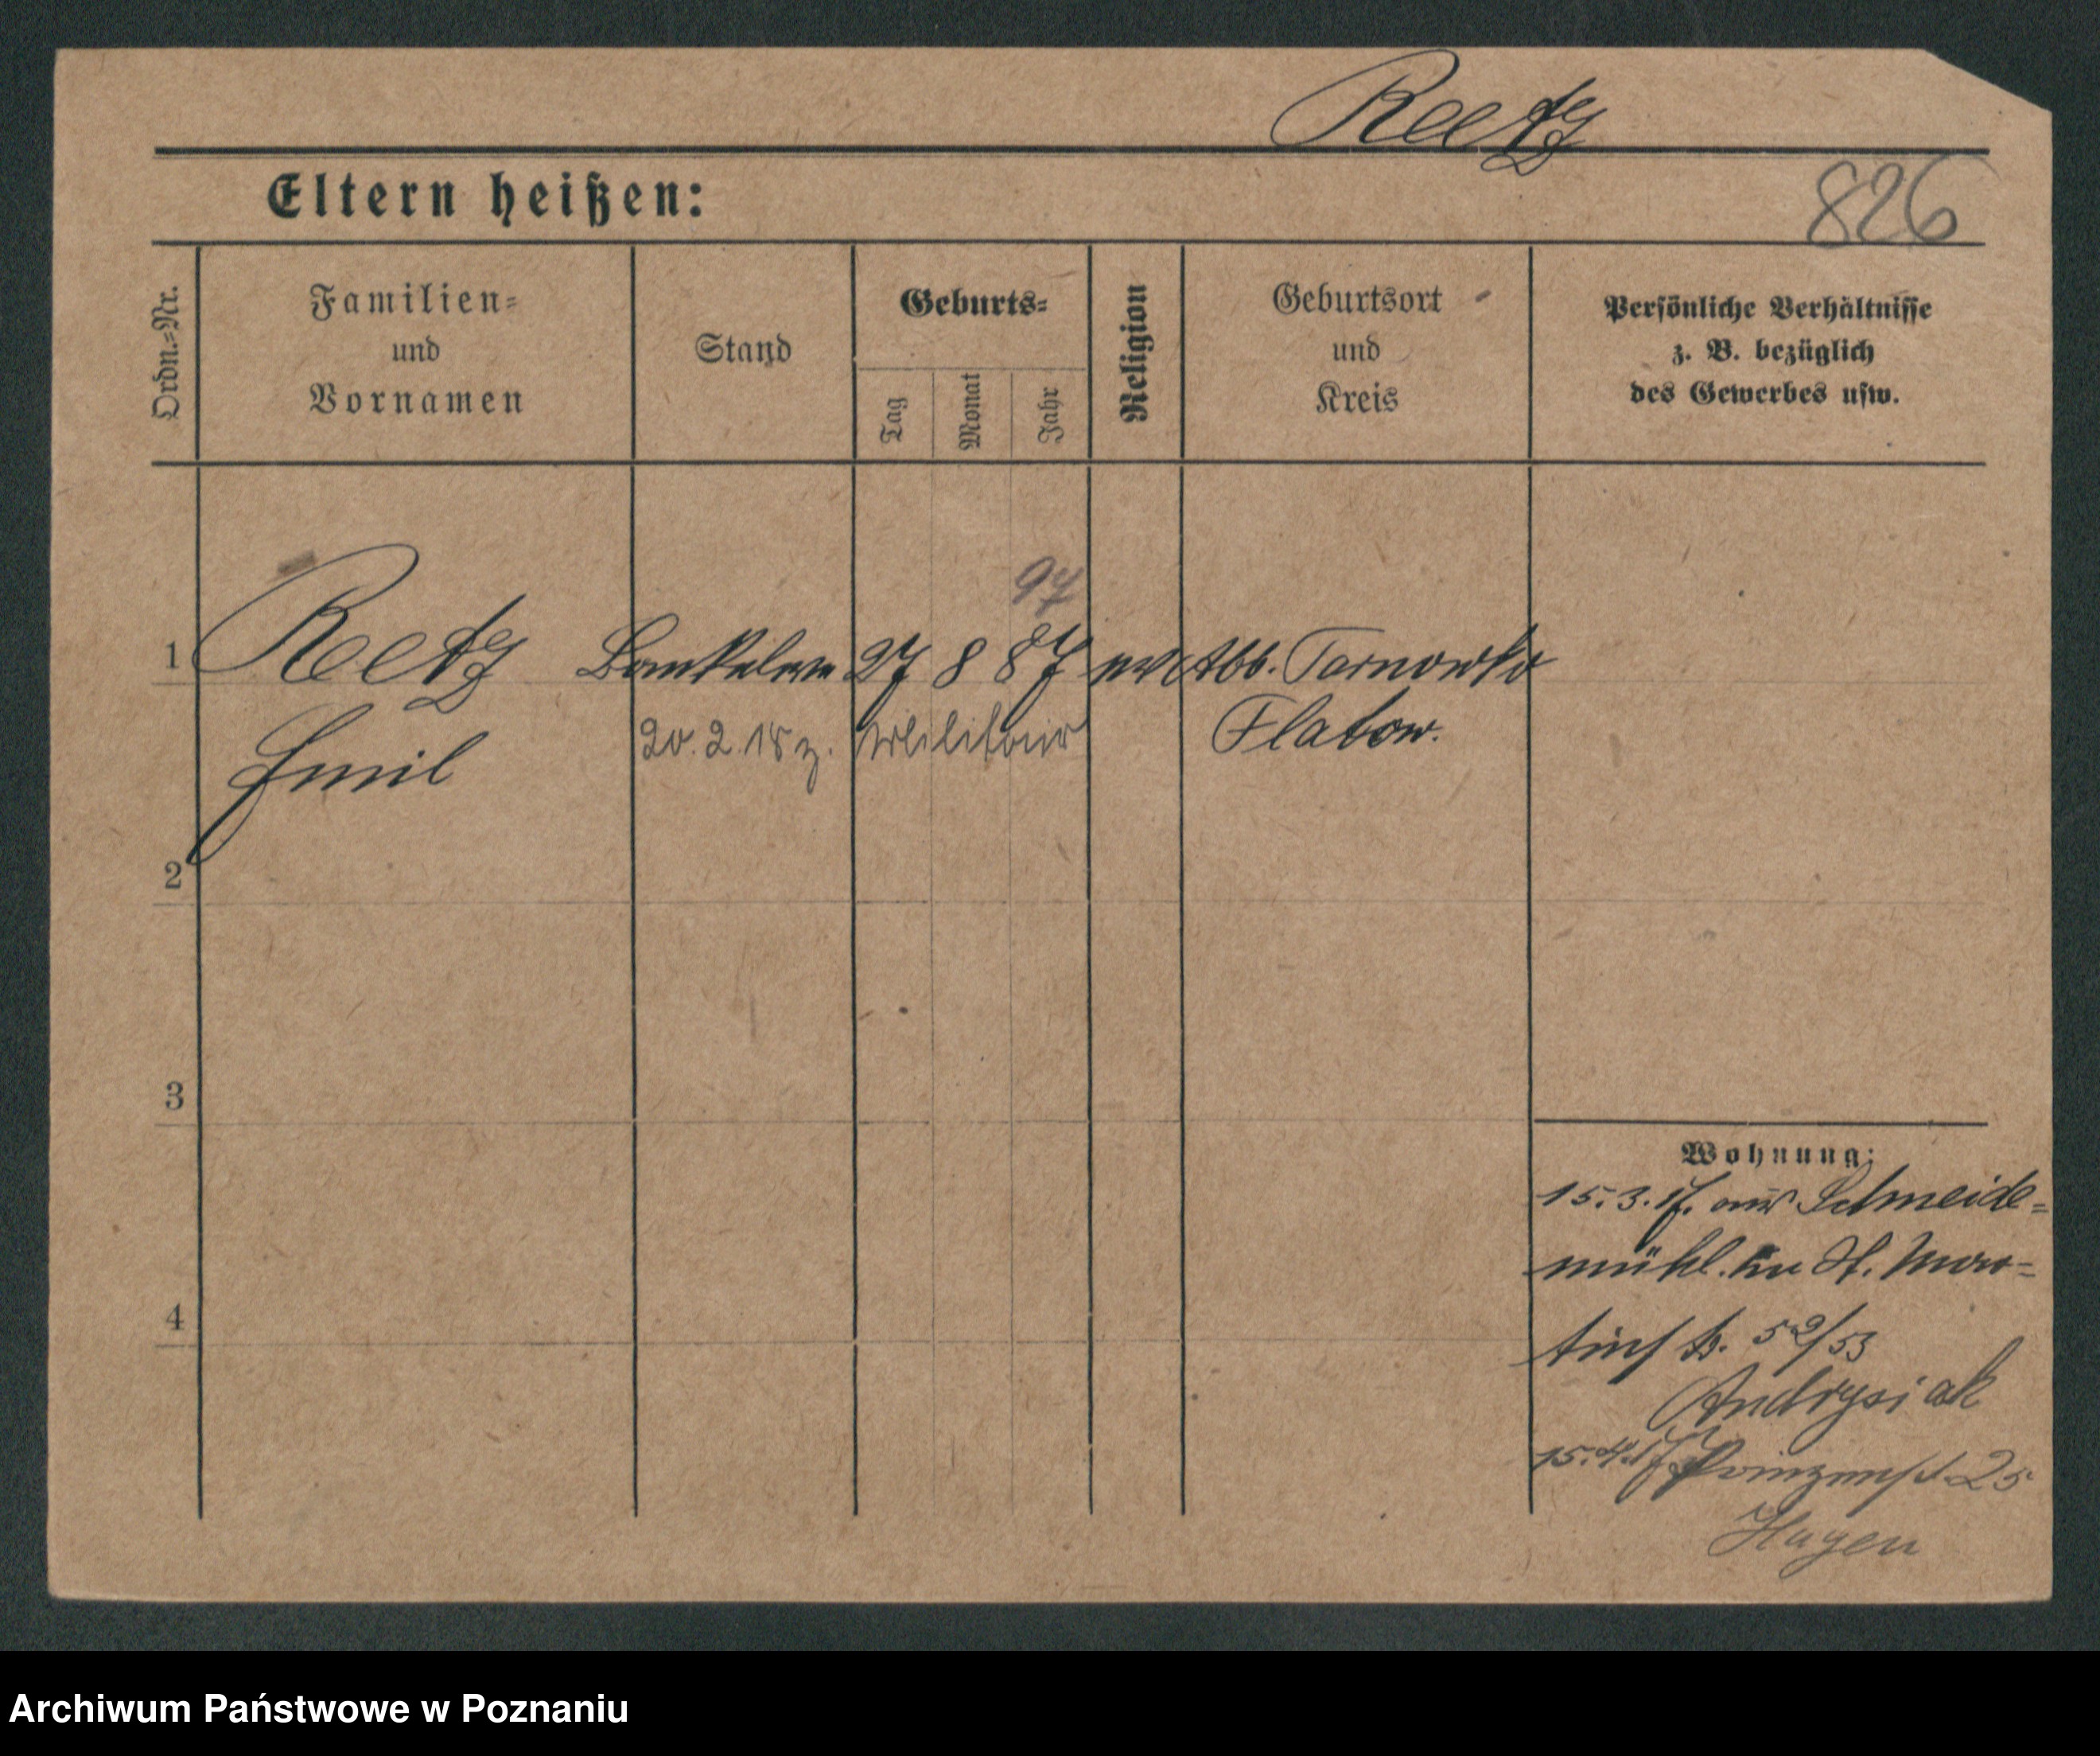 Reetz
Eltern heißen:
826
Ordn.=Nr.
Familien=
und
Vornamen
Stand
Geburts=
Tag
Monat
Jahr
Religion
Geburtsort
und
Kreis
Persönliche Verhältnisse
z. B. bezüglich
des Gewerbes usw.
97
1 Reetz 27 8 87 ev Abb. Tarnowko
Emil 20.2.18 z. Militär Flatow.
2
3
4
Wohnung:
15.3.17. aus Schneide=
mühl. zu St. Mar=
tinst. 52/53
Andrysiak
15.4.17 Prinzenst 25
Hagen
Archiwum Państwowe w Poznaniu